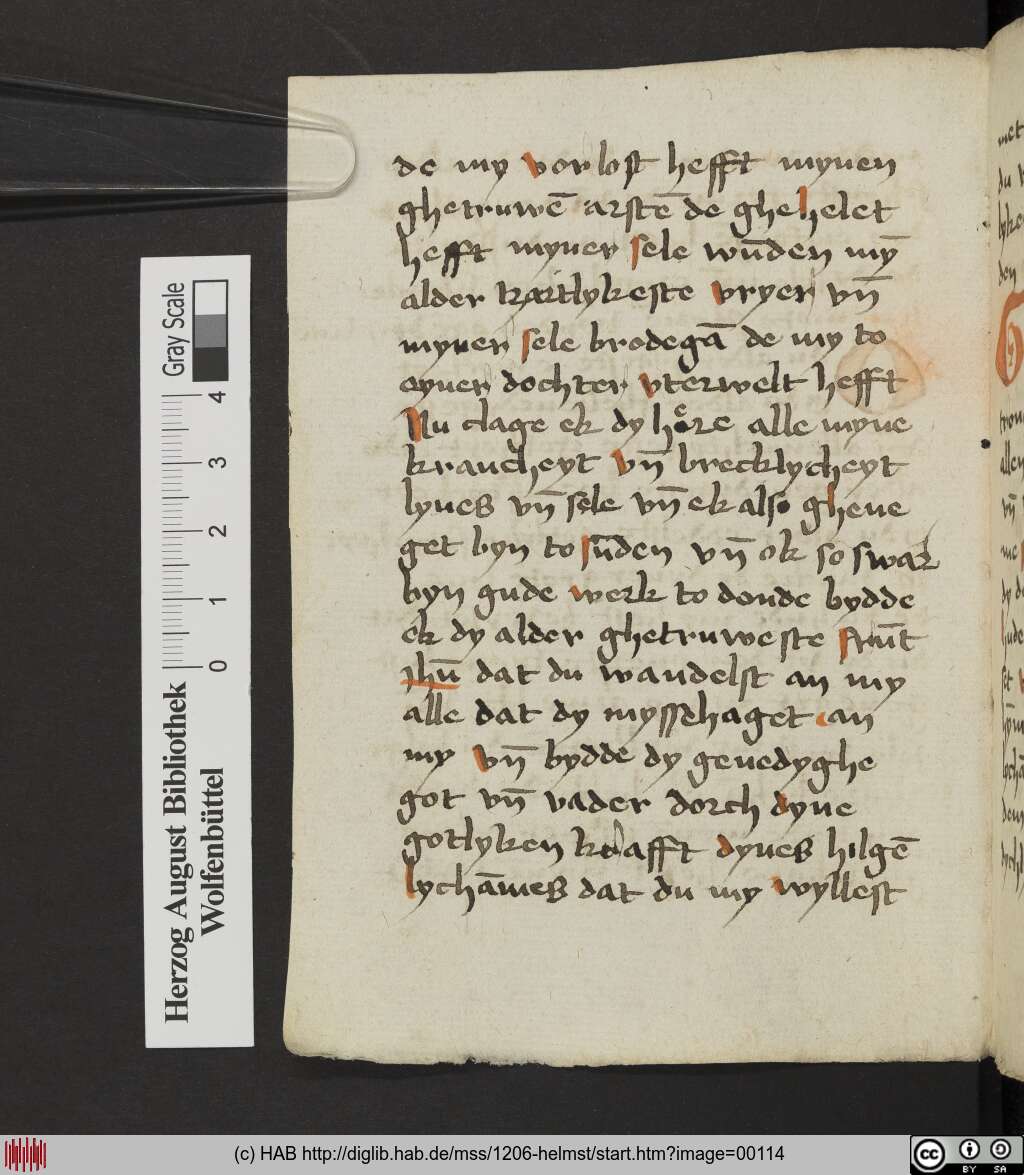 de my vorlost hefft mynen
ghetruwē arstē de ghehelet
hefft myner sele wūden my̅
alder tzartlykeste vryer vn̄
myner sele brodegā de my to
eyner dochter vterwelt hefft
Nu clage ek dy hoͤre alle myne
krancheyt vn̄ brecklycheyt
lyues vn̄ sele vn̄ ek also ghene
get byn to sūden vn̄ ok so swar
byn gude werk to donde bydde
ek dy alder ghetruweste frūt
ihū dat du wandelst an my
alle dat dy mysshaget an
my vn̄ bydde dy genedyghe
got vn̄ vader dorch dyne
gotlyken krafft dynes hilgē
lychāmes dat du my wyllest
Gray Scale
0 1 2 3 4
Herzog August Bibliothek
Wolfenbüttel
(c) HAB http://diglib.hab.de/mss/1206-helmst/start.htm?image=00114
cc BY SA